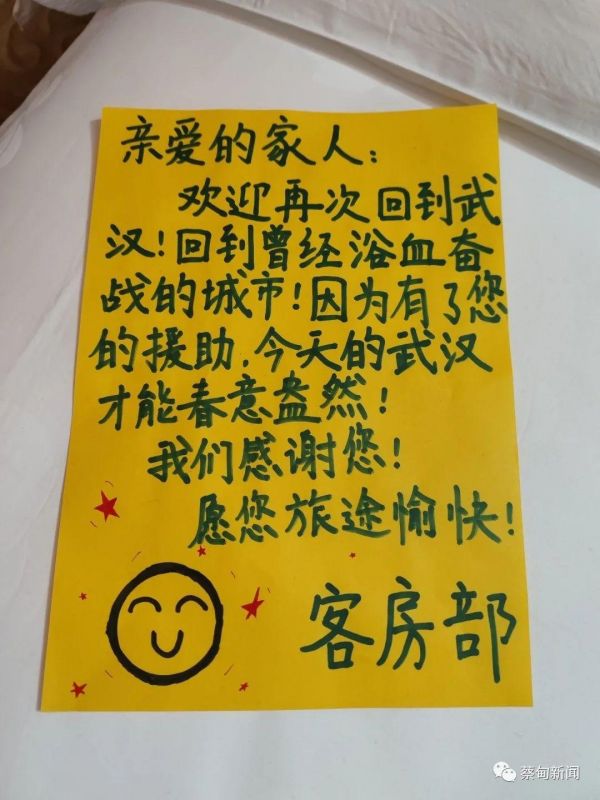 亲爱的家人:
欢迎再次回到武
汉!回到曾经浴血奋
战的城市!因为有了您
的援助.今天的武汉
才能春意盎然!
我们感谢您!
愿您旅途愉快!
客房部
蔡甸新闻